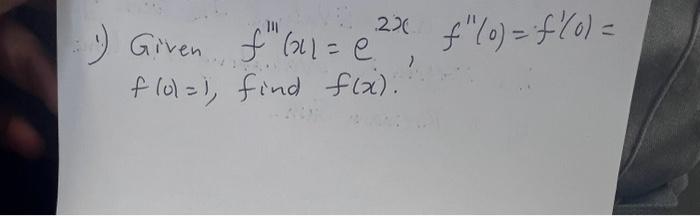 1) Given f'''(x) = e^2x, f''(0) = f'(0) =
f(0)=1, find f(x).